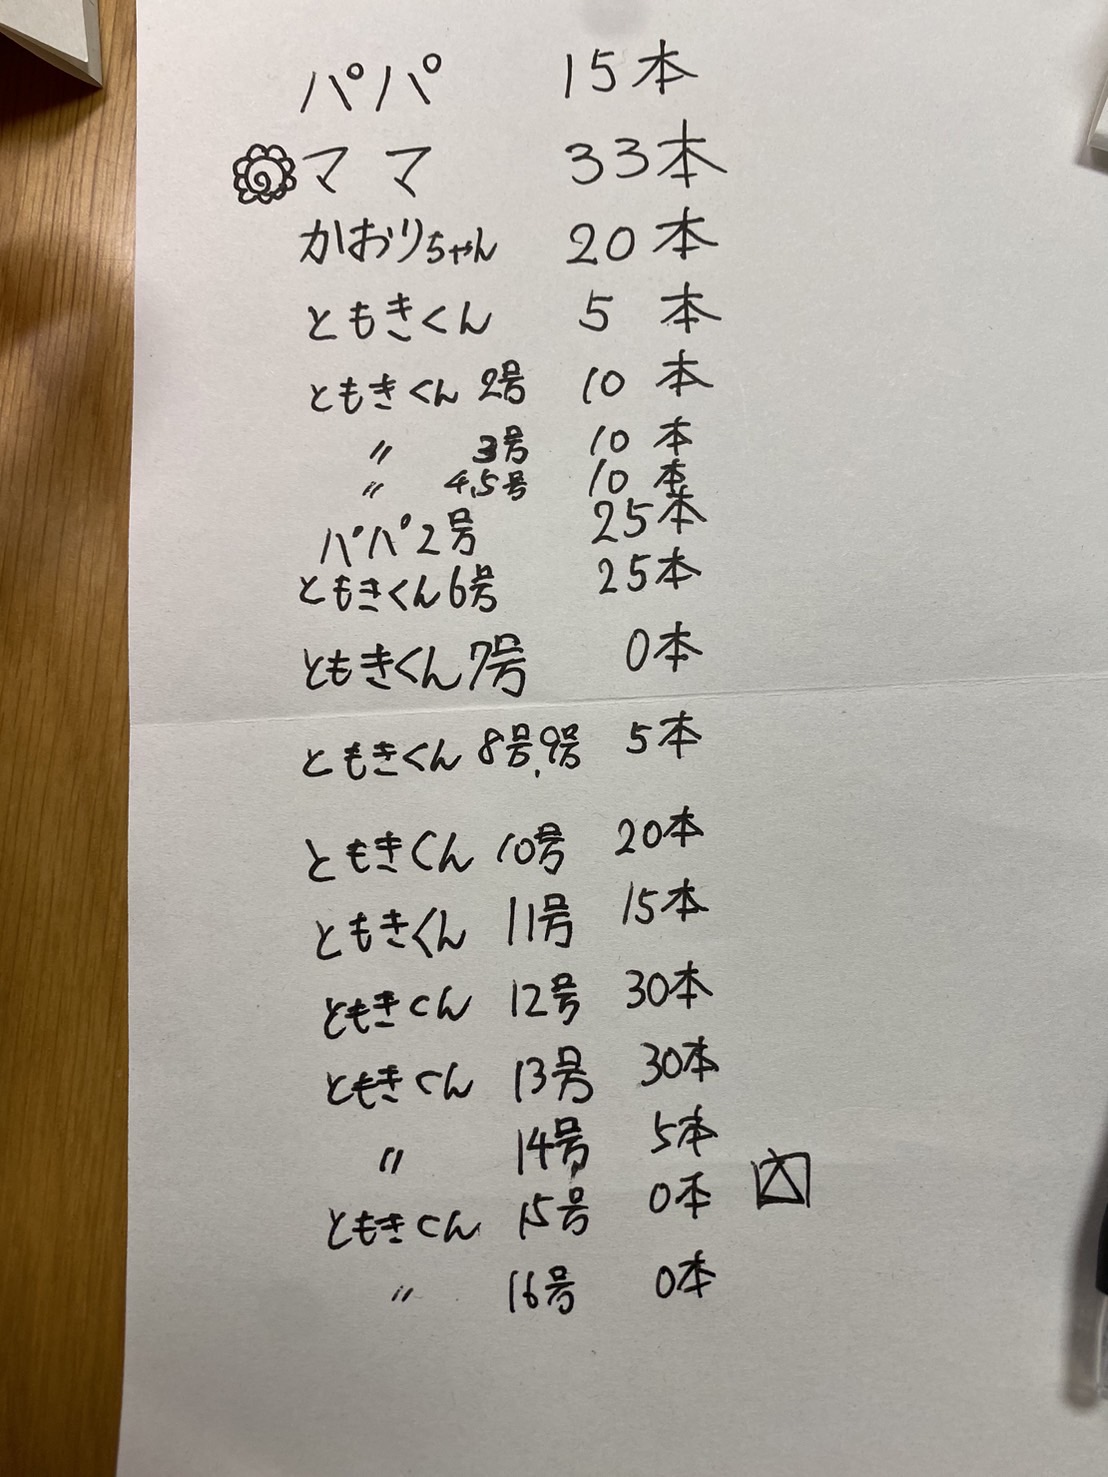 パパ 15本
ママ 33本
かおりちゃん 20本
ともきくん 5本
ともきくん 2号 10本
〃 3号 10本
〃 4,5号 10本
パパ2号 25本
ともきくん6号 25本
ともきくん7号 0本
ともきくん 8号,9号 5本
ともきくん 10号 20本
ともきくん 11号 15本
ともきくん 12号 30本
ともきくん 13号 30本
〃 14号 5本
ともきくん 15号 0本
〃 16号 0本